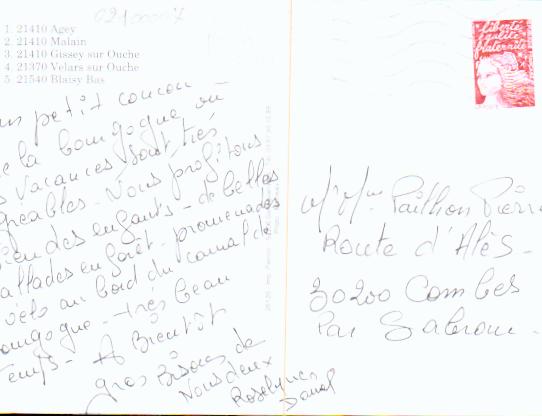 1. 21410 Agey
2. 21410 Malain
3. 21410 Gissey sur Ouche
4. 21370 Velars sur Ouche
5. 21540 Blaisy Bas
petit coucou
de la bourgogne où
vacances sont très
Nous profitons
bien des enfants - de belles
ballades en forêt - promenades
vélo au bord du canal de
bourgogne - très beau
temps - A Bientôt
gros Bisous de
Nous deux
liberté
égalité
fraternité
Mr Mme Pierre
Route d'Alès -
30200 Combes
Par Sabran